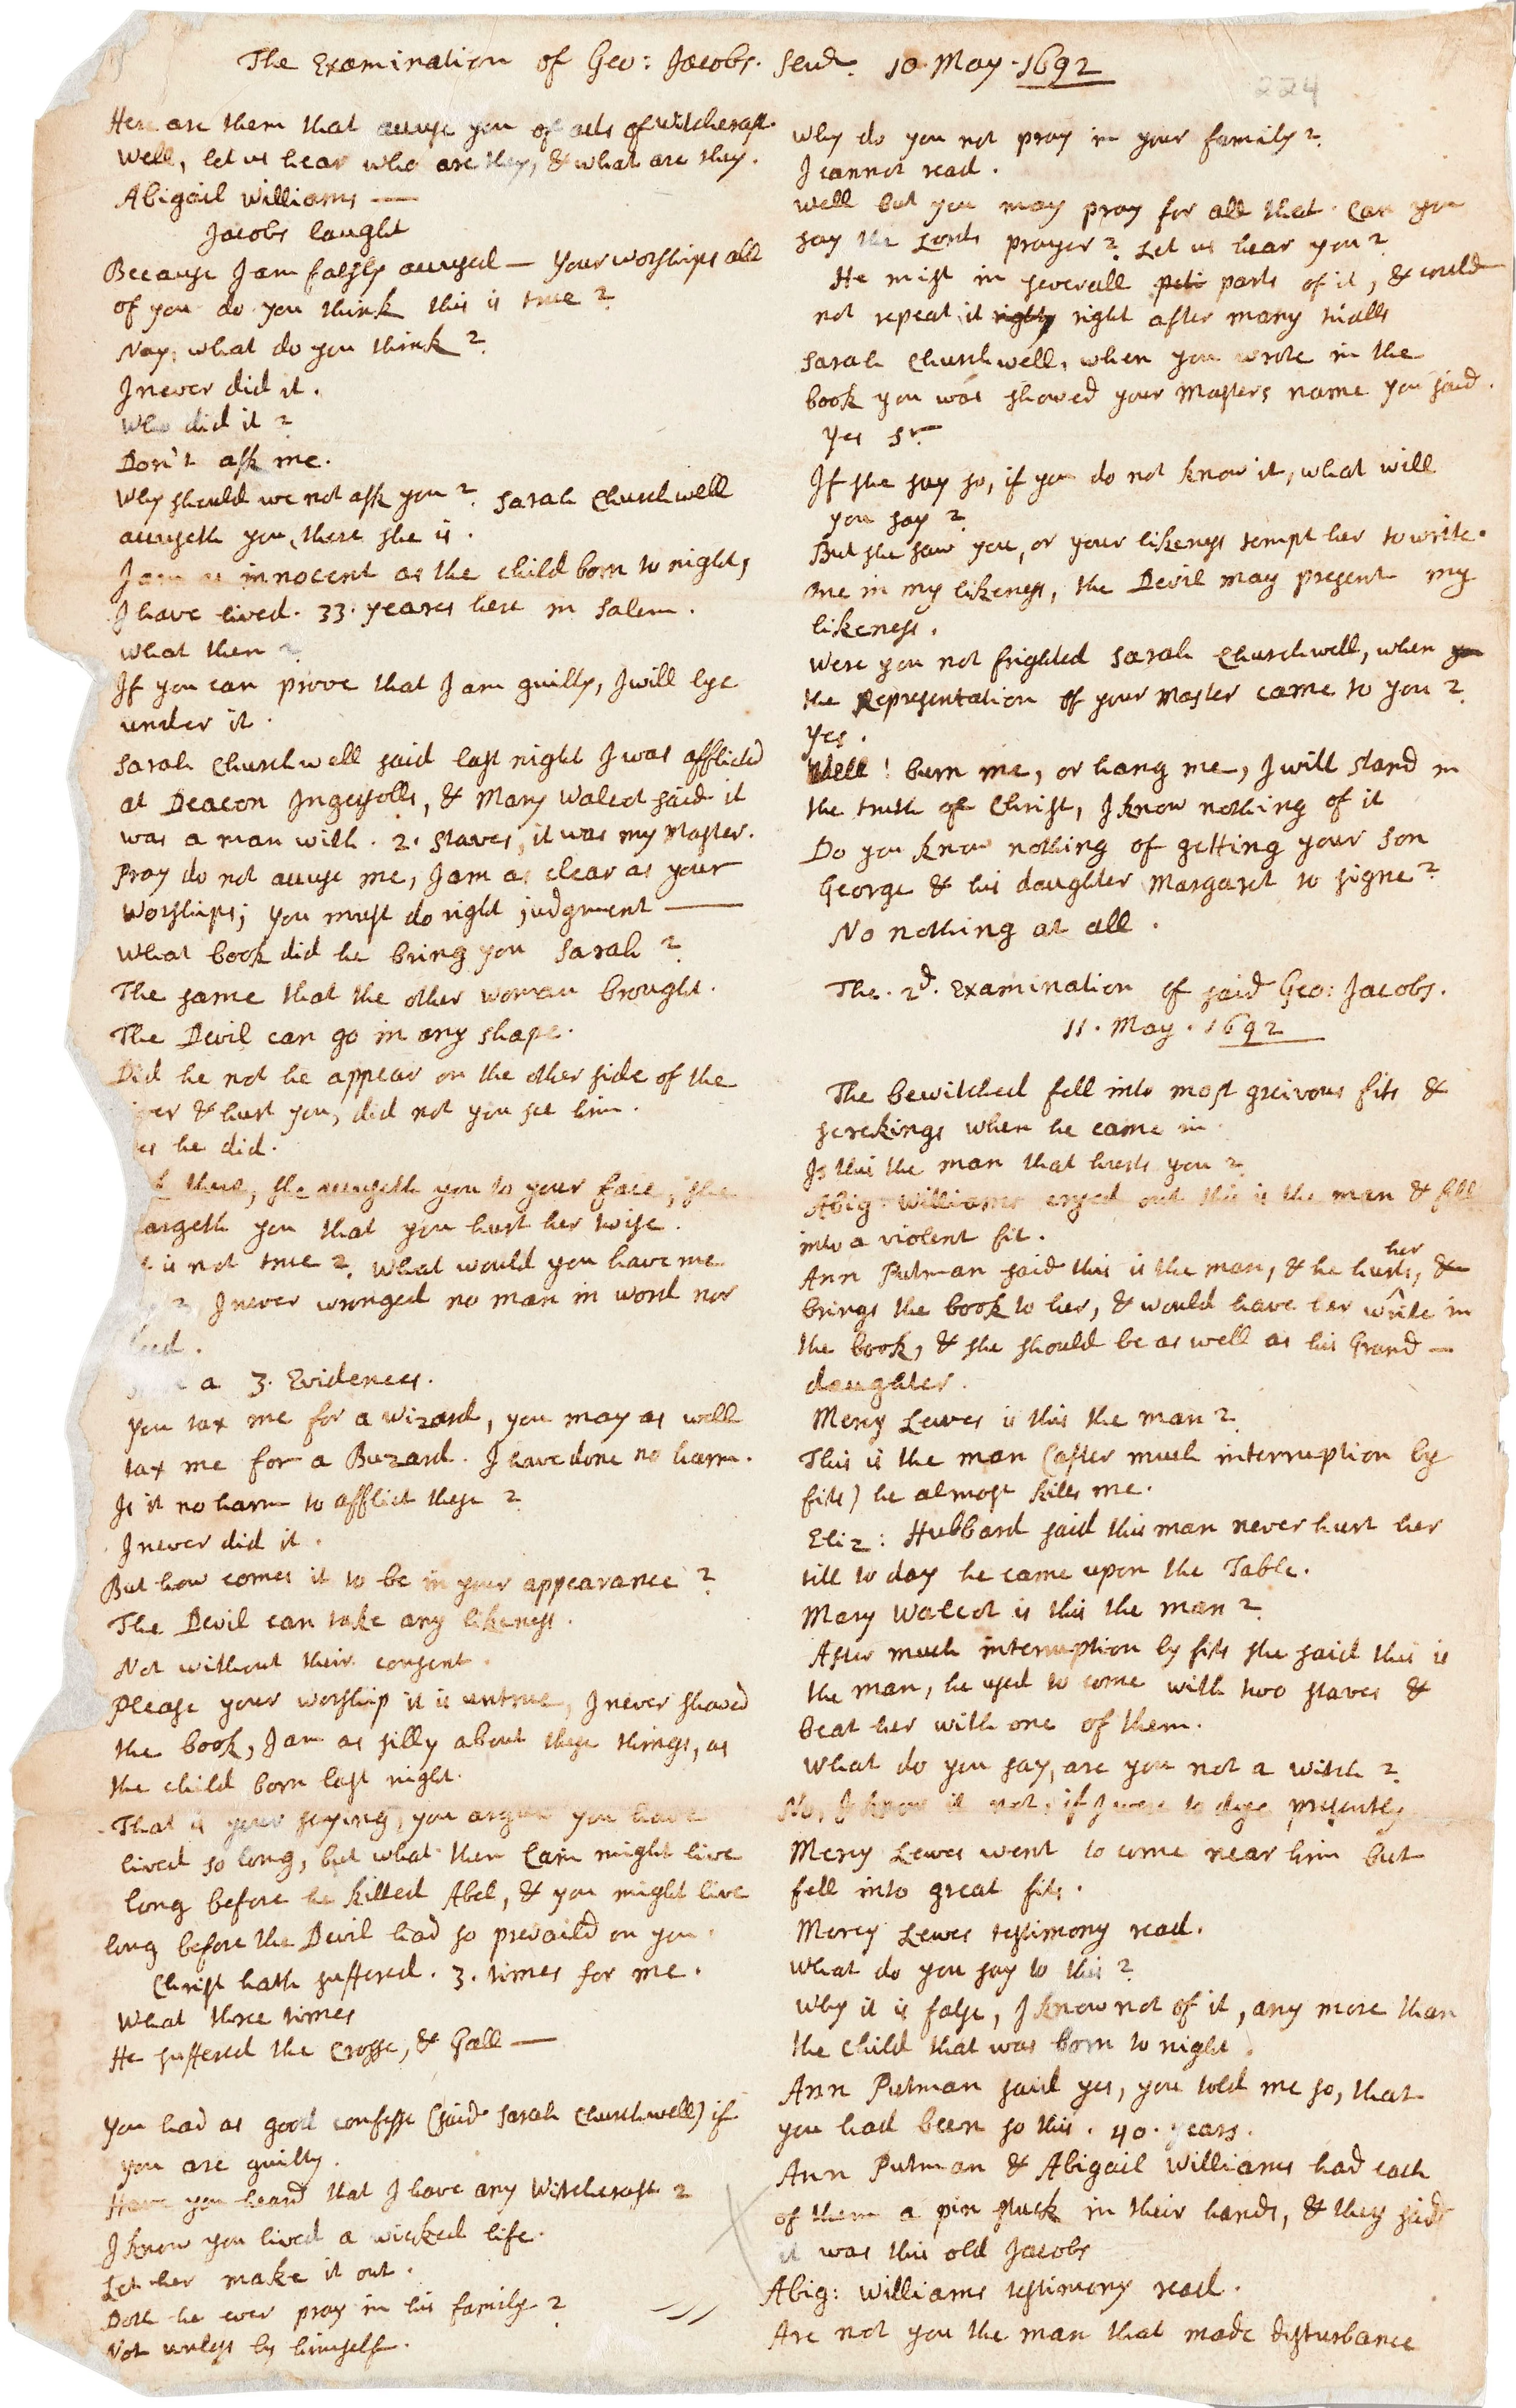 The Examination of Geo: Jacobs. Senr. 10. May. 1692
224
Here are them that accuse you of acts of witchcraft.
Well, let us hear who are they, & what are they.
Abigail Williams —
Jacobs laught
Because I am falsly accused — Your worships all
of you do you think this is true?
Nay, what do you think?
I never did it.
Who did it?
Don't ask me.
Why should we not ask you? Sarah Churchwell
accuseth you, there she is.
I am as innocent as the child born to night,
I have lived. 33. yeares here in Salem.
What then?
If you can prove that I am guilty, I will lye
under it.
Sarah Churchwell said last night I was afflicted
at Deacon Ingersolls, & Mary Walcot said it
was a man with. 2. staves, it was my Master.
Pray do not accuse me, I am as clear as your
Worships; You must do right judgment —
What book did he bring you Sarah?
The same that the other woman brought.
The Devil can go in any shape.
Did he not he appear on the other side of the
iver & hurt you, did not you see him.
es he did.
there, she accuseth you to your face, she
argeth you that you hurt her twise.
t is not true? What would you have me
? I never wronged no man in word nor
eed.
a 3. Evidences.
You tax me for a Wizard, you may as well
tax me for a Buzard. I have done no harm.
Is it no harm to afflict these?
I never did it.
But how comes it to be in your appearance?
The Devil can take any likeness.
Not without their consent.
Please your worship it is untrue, I never showed
the book, I am as silly about these things, as
the child born last night.
That is your saying, you argue you have
lived so long, but what then Cain might live
long before he killed Abel, & you might live
long before the Devil had so prevaild on you.
Christ hath suffered. 3. times for me.
What three times
He suffered the Crosse, & Gall —
You had as good confesse (said Sarah Churchwell) if
you are guilty.
Have you heard that I have any Witchcraft?
I know you lived a wicked life.
Let her make it out.
Doth he ever pray in his family?
Not unless by himself.
Why do you not pray in your family?
I cannot read.
Well but you may pray for all that. Can you
say the Lords prayer? Let us hear you?
He mist in severall parts of it, & could
not repeat it right right after many trialls
Sarah Churchwell, when you wrote in the
book you was showed your Masters name you said.
Yes Sr.
If she say so, if you do not know it, what will
you say?
But she saw you, or your likeness tempt her to write.
One in my likeness, the Devil may present my
likeness.
Were you not frighted Sarah Churchwell, when you
the Representation of your Master came to you?
Yes.
Well! burn me, or hang me, I will stand in
the truth of Christ, I know nothing of it
Do you know nothing of getting your son
George & his daughter Margaret to signe?
No nothing at all.
The. 2d. Examination of said Geo: Jacobs.
11. May. 1692
The bewitched fell into most greivous fits &
screkings when he came in.
Is this the man that hurts you?
Abig: Williams cryed out this is the man & fell
into a violent fit.
Ann Putman said this is the man, & he hurts her, &
brings the book to her, & would have her write in
the book, & she should be as well as his Grand —
daughter.
Mercy Lewes is this the man?
This is the man (after much interruption by
fits) he almost kills me.
Eliz: Hubbard said this man never hurt her
till to day he came upon the Table.
Mary Walcot is this the man?
After much interruption by fits she said this is
the man, he used to come with two staves &
beat her with one of them.
What do you say, are you not a witch?
No, I know it not, if I were to dye presently
Mercy Lewes went to come near him but
fell into great fits.
Mercy Lewes testimony read.
What do you say to this?
Why it is false, I know not of it, any more than
the child that was born to night.
Ann Putman said yes, you told me so, that
you had been so this. 40. years.
Ann Putman & Abigail Williams had each
of them a pin stuck in their hands, & they said
it was this old Jacobs
Abig: Williams testimony read.
Are not you the man that made disturbance